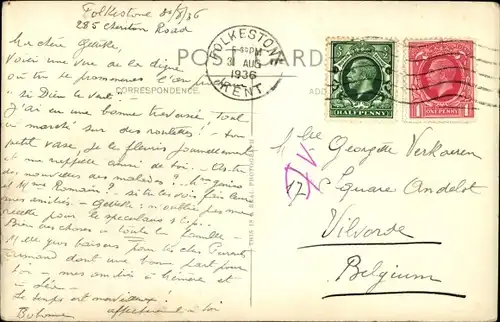 Folkestone 30/8/36
285 Cheriton Road
Ma chère Getteke,
Voici une vue de la digue
où tu te promèneras l'an
" si Dieu le veut ".
J'ai eu une bonne traversée, Tout
a marché sur des roulettes! - Ton
petit vase, je le fleuris journellement
me rappelle ainsi de toi. - As-tu
des nouvelles des malades?
et Mme Romain? si tu les vois fais leur
mes amitiés. - Getteke, n'oublie pas une
recette pour le speculaus s.t.p.
Bien des choses à toute la famille
Mille gros baisers pour tes chers Parents
Armand dont une bonne part pour
toi - mes amitiés à
et à
Le temps est merveilleux!
Bobonne affectionnée à toi
POST CARD
CORRESPONDENCE
THIS IS A REAL PHOTOGRAPH
FOLKESTONE
6-PM
31 AUG
1936
KENT
HALFPENNY
1 ONE PENNY 1
Mlle Georgette Verkaeren
17 Square Andelot
Vilvorde
Belgium